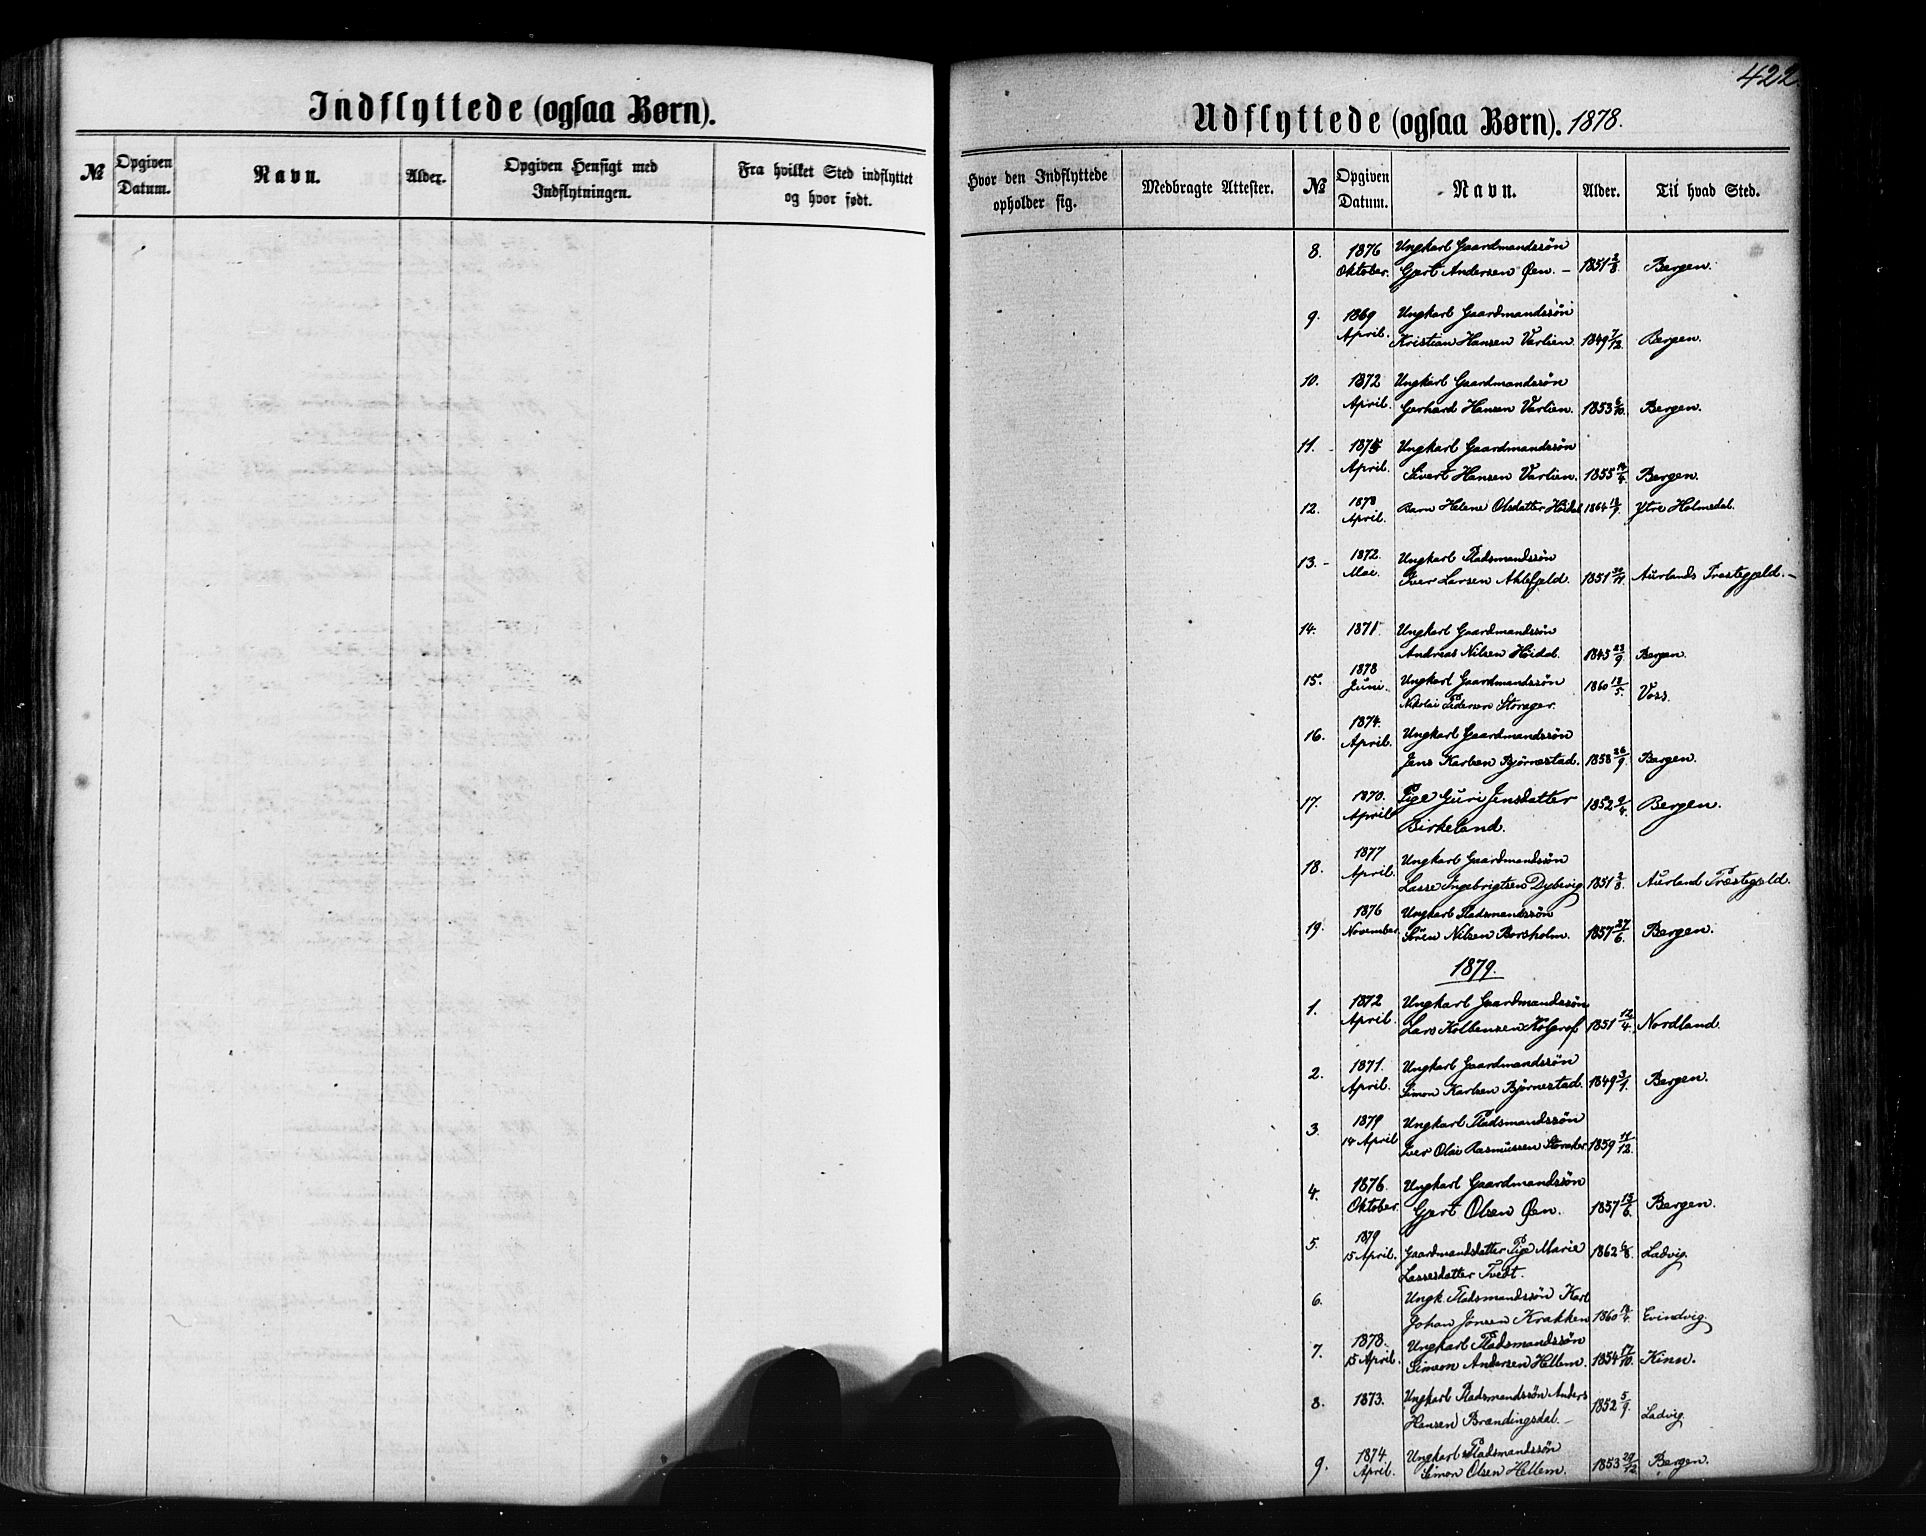 422
Indflyttede (ogsaa Børn).
№ Opgiven Datum. Navn. Alder. Opgiven Hensigt med Indflytningen. Fra hvilket Sted indflyttet og hvor født.
Udflyttede (ogsaa Børn). 1878.
Hvor den Indflyttede opholder sig. Medbragte Attester. № Opgiven Datum. Navn. Alder. Til hvad Sted.
8. 1876 Ungkarl Gaardmandssøn
Oktober. Gjert Andersen Øen. – 1851 2/8. Bergen.
9. 1869 Ungkarl Gaardmandssøn
April. Kristian Hansen Varlien. 1849 7/12. Bergen.
10. 1872 Ungkarl Gaardmandssøn
April. Gerhard Hansen Varlien. 1853 6/10. Bergen.
11. 1875 Ungkarl Gaardmandssøn
April. Sivert Hansen Varlien. 1855 14/4. Bergen.
12. 1878
April. Barn Helene Olsdatter Høidal 1864 18/7. Ytre Holmedal.
13. – 1872. Ungkarl Pladsmandssøn
Mai. Iver Larsen Ahlefjeld. 1851 Aurlands Præstegjeld. –
14. 1871. Ungkarl Gaardmandssøn
Andreas Nilsen Høidal. 1845 23/9. Bergen.
15. 1878
Juni. Ungkarl Gaardmandssøn 1860 18/5. Voss.
Nikolai Pedersen Storager.
16. 1874.
April. Ungkarl Gaardmandssøn
Jens Karlsen Bjørnestad. 1858 26/9. Bergen.
17. 1870. Pige Guri Jensdatter
April Birkeland. 1852 9/4. Bergen.
18. 1877 Ungkarl Gaardmandssøn
April. Lasse Ingebrigtsen Dybevig 1851 2/8. Aurland Præstegjeld.
19. 1876 Ungkarl Pladsmandssøn
November. Søren Nilsen Borsholm. 1857 27/6. Bergen.
1879.
1. 1872 Ungkarl Gaardmandssøn
April. Lars Kolbensen Kolgrof 1851 12/4. Nordland.
2. 1871. Ungkarl Gaardmandssøn
April. Simon Karlsen Bjørnestad. 1849 3/1. Bergen.
3. 1879 Ungkarl Pladsmandssøn
14 April Iver Olai Rasmussen Storaker 1859 11/12.
4. 1876. Ungkarl Gaardmandssøn
Oktober. Gjert Olsen Øen. 1857 15/6. Bergen.
5. 1879
15 April. Gaardmandsdatter Pige Marie 1862 6/8. Ladvig.
Lassesdatter Tvedt.
6. Ungk. Pladsmandssøn Karl
Johan Jonsen Krakken 1860 18/4. Evindvig.
7. 1878. Ungkarl Pladsmandssøn
15 April. Simon Andersen Hellem. 1854 17/10. Kinn.
8. 1873. Ungkarl Pladsmandssøn Anders
Hansen Brændingsdal. – 1852 5/9. Ladvig.
9. 1874. Ungkarl Pladsmandssøn
April. Simon Olsen Hellem. 1853 29/12. Bergen.